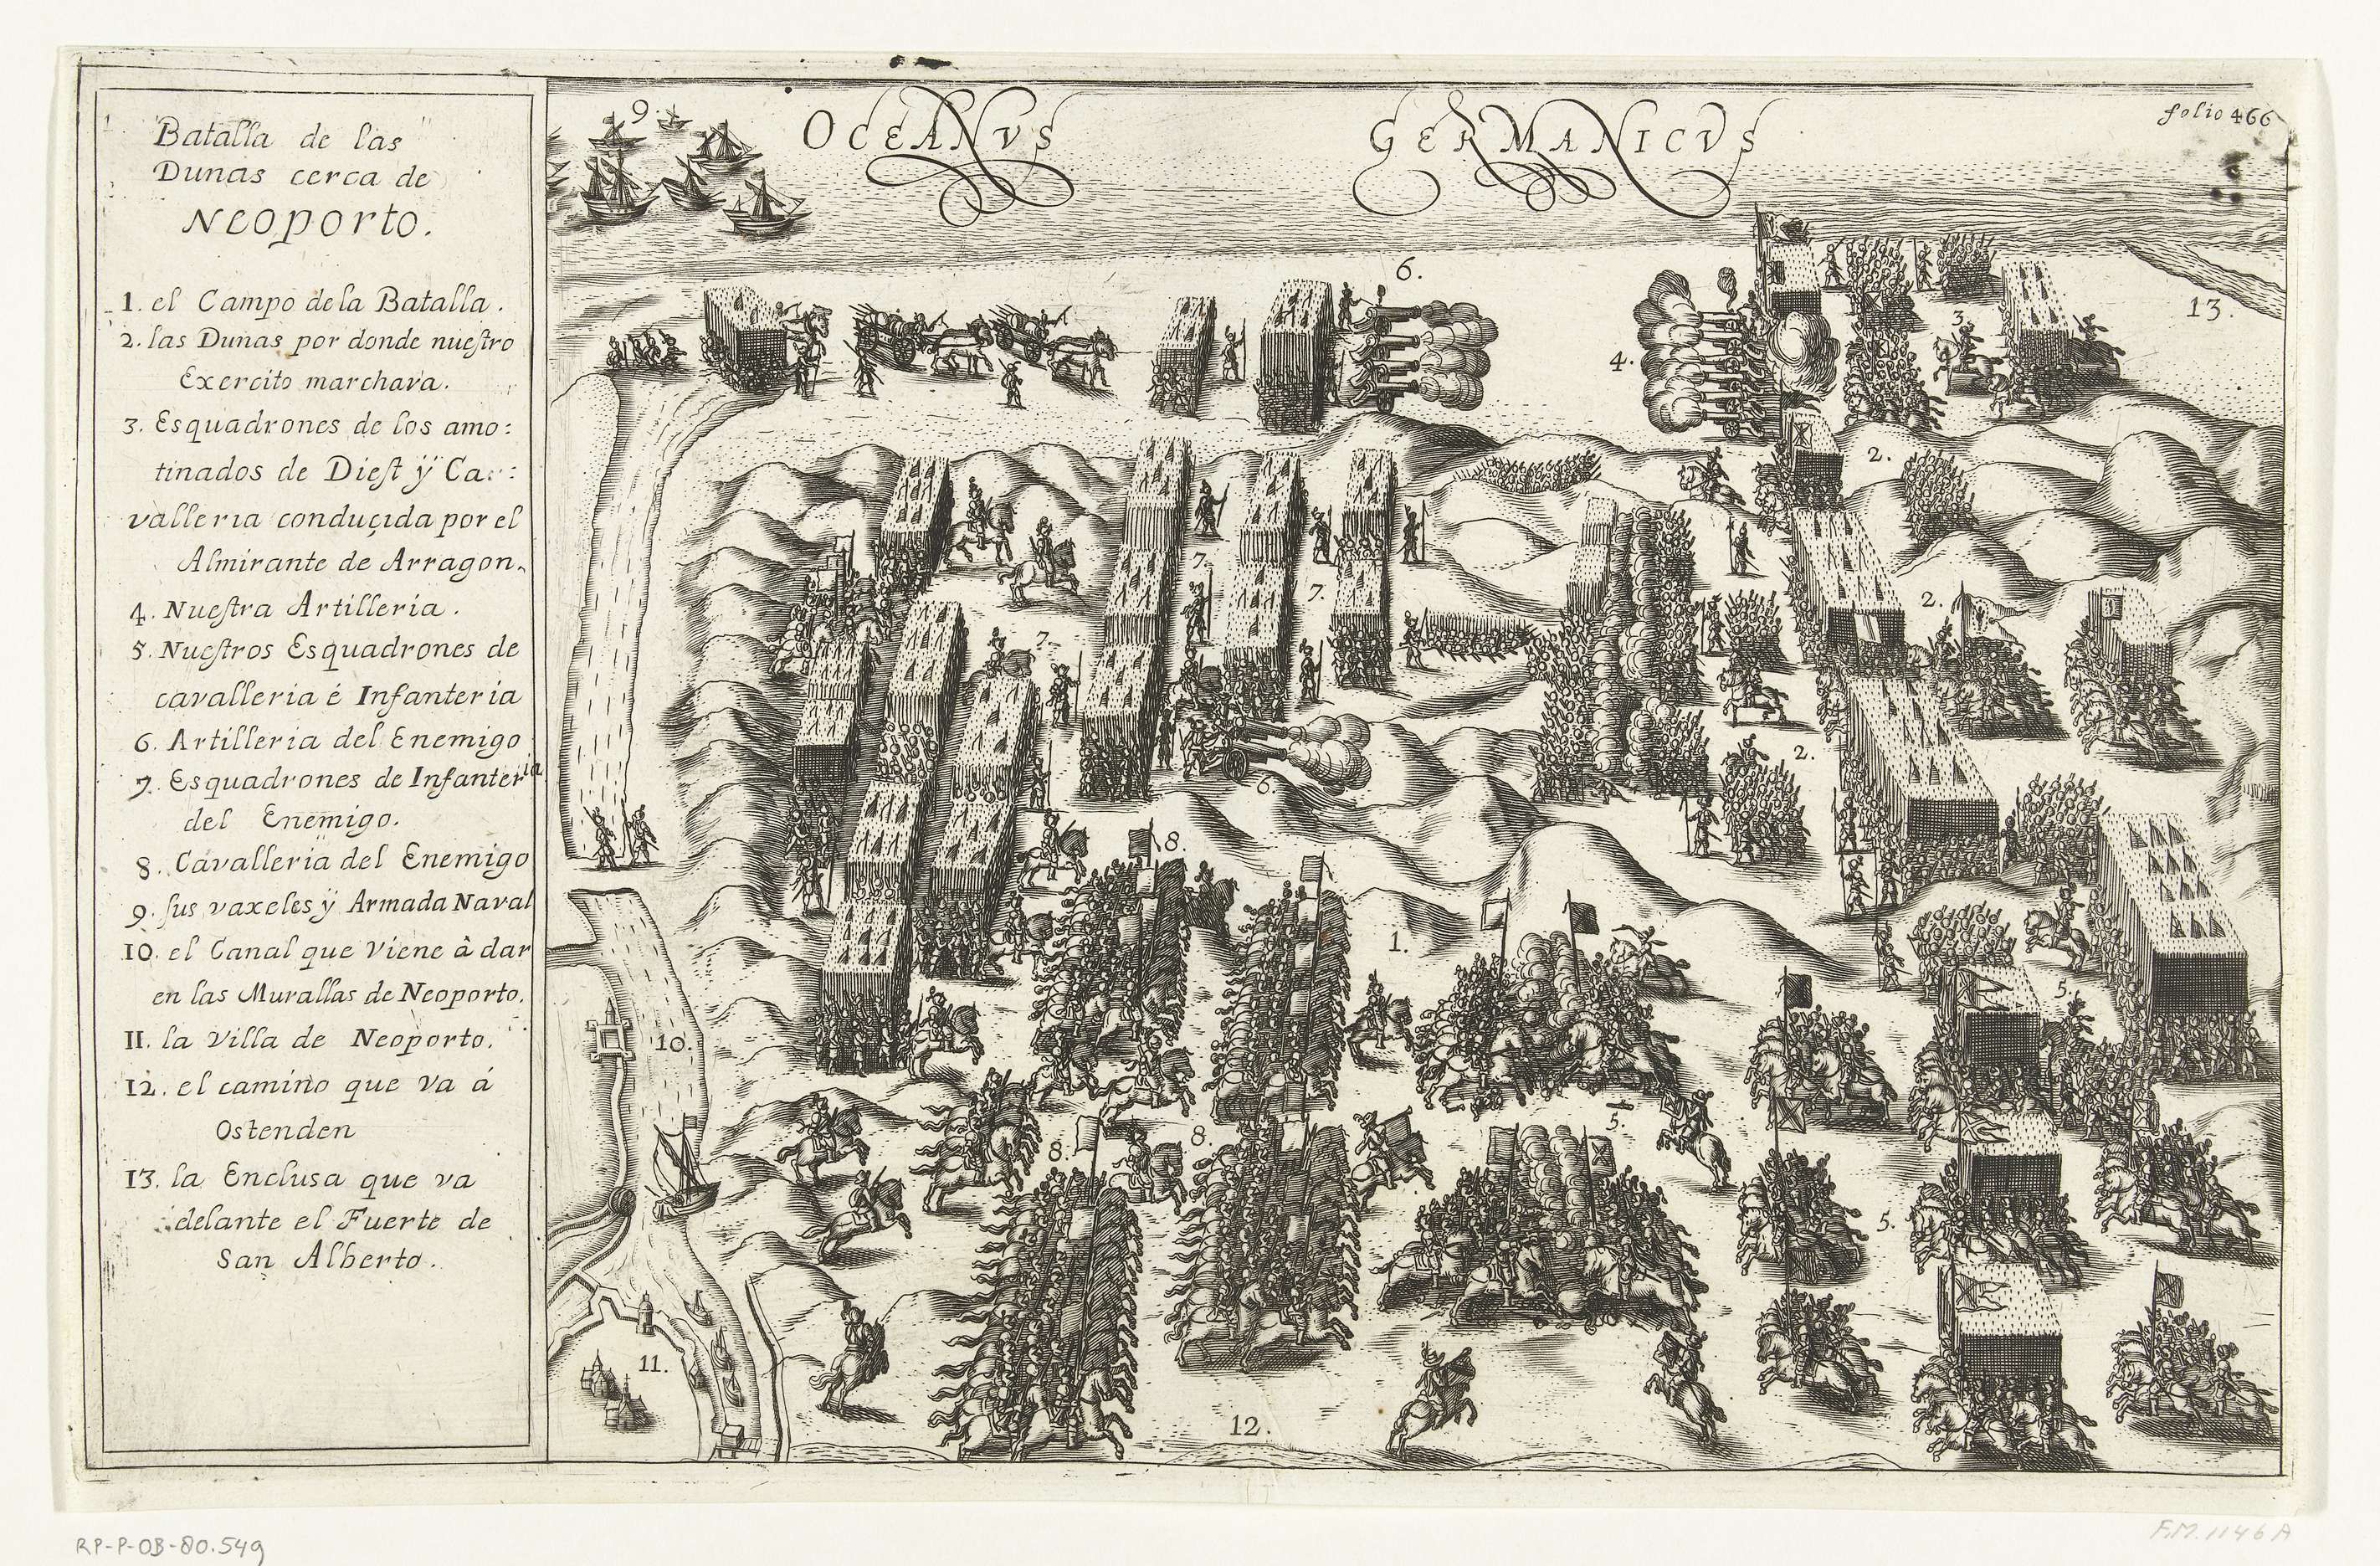 Batalla de las
Dunas cerca de
Neoporto.
1. el Campo de la Batalla.
2. las Dunas por donde nueſtro
Exercito marchava.
3. Esquadrones de los amo:
tinados de Dieſt ÿ Ca:
valleria conduçida por el
Almirante de Arragon.
4. Nueſtra Artilleria.
5. Nueſtros Esquadrones de
cavalleria é Infanteria
6. Artilleria del Enemigo
7. Esquadrones de Infanteria
del Enemigo.
8. Cavalleria del Enemigo
9. ſus vaxeles ÿ Armada Naval
10. el Canal que viene à dar
en las Murallas de Neoporto.
11. la Villa de Neoporto.
12. el camino que va á
Ostenden
13. la Enclusa que va
delante el Fuerte de
San Alberto.
OCEANVS GERMANICVS
folio 466
9.
6.
13.
3.
4.
2.
7.
7.
2.
7.
2.
6.
8.
1.
5.
10.
5.
8.
8.
5.
11.
12.
RP-P-OB-80.549
F.M. 1146 A